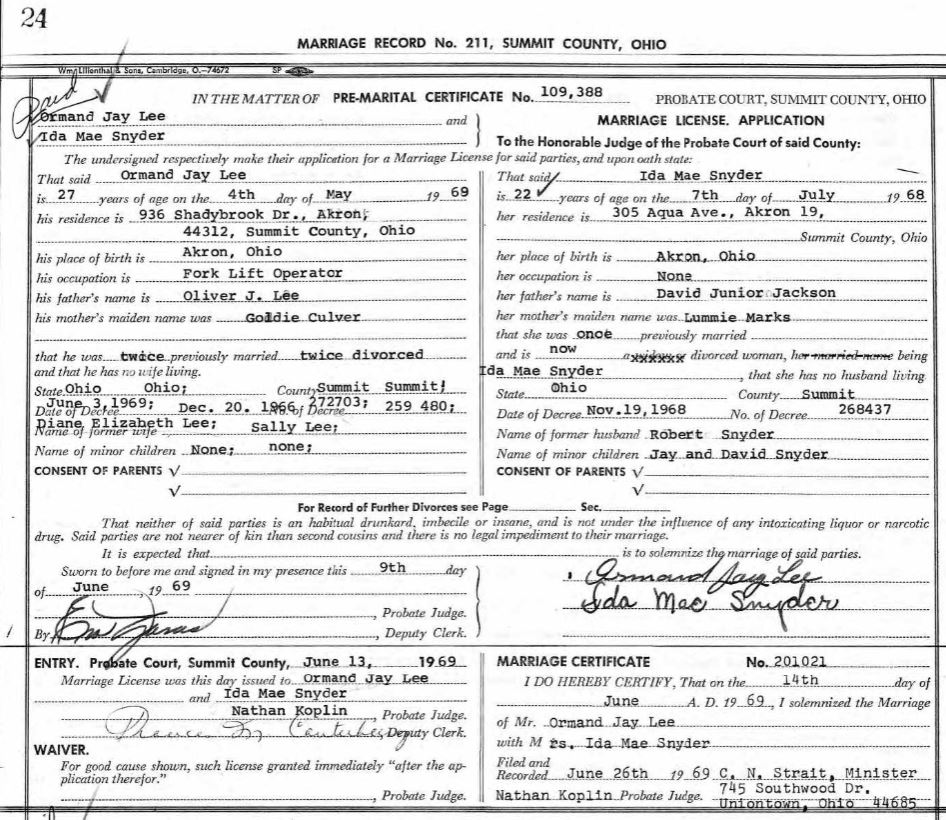 24
MARRIAGE RECORD No. 211, SUMMIT COUNTY, OHIO
Wm. Lilienthal & Sons, Cambridge, O.—74672 SP
Paid
IN THE MATTER OF PRE-MARITAL CERTIFICATE No. 109,388 PROBATE COURT, SUMMIT COUNTY, OHIO
Ormand Jay Lee and
Ida Mae Snyder
MARRIAGE LICENSE. APPLICATION
To the Honorable Judge of the Probate Court of said County:
The undersigned respectively make their application for a Marriage License for said parties, and upon oath state:
That said Ormand Jay Lee
is 27 years of age on the 4th day of May 19 69
his residence is 936 Shadybrook Dr., Akron,
44312, Summit County, Ohio
his place of birth is Akron, Ohio
his occupation is Fork Lift Operator
his father's name is Oliver J. Lee
his mother's maiden name was Goldie Culver
that he was twice previously married twice divorced
and that he has no wife living.
State Ohio Ohio; County Summit Summit;
Date of Decree June 3,1969; Dec. 20. 1966 No. of Decree 272703; 259 480;
Name of former wife Diane Elizabeth Lee; Sally Lee;
Name of minor children None; none;
CONSENT OF PARENTS √
√
That said Ida Mae Snyder
is 22 ✓ years of age on the 7th day of July 19 68
her residence is 305 Aqua Ave., Akron 19,
Summit County, Ohio
her place of birth is Akron, Ohio
her occupation is None
her father's name is David Junior Jackson
her mother's maiden name was Lummie Marks
that she was once previously married
and is now a xxxxxx divorced woman, her married name being
Ida Mae Snyder, that she has no husband living
State Ohio County Summit
Date of Decree Nov.19,1968 No. of Decree 268437
Name of former husband Robert Snyder
Name of minor children Jay and David Snyder
CONSENT OF PARENTS √
√
For Record of Further Divorces see Page Sec.
That neither of said parties is an habitual drunkard, imbecile or insane, and is not under the influence of any intoxicating liquor or narcotic
drug. Said parties are not nearer of kin than second cousins and there is no legal impediment to their marriage.
It is expected that is to solemnize the marriage of said parties.
Sworn to before me and signed in my presence this 9th day
of June, 19 69
, Probate Judge.
By , Deputy Clerk.
Ormand Jay Lee
Ida Mae Snyder
ENTRY. Probate Court, Summit County, June 13, 1969
Marriage License was this day issued to Ormand Jay Lee
and Ida Mae Snyder
Nathan Koplin, Probate Judge.
Deputy Clerk.
WAIVER.
For good cause shown, such license granted immediately "after the ap-
plication therefor."
, Probate Judge.
MARRIAGE CERTIFICATE No. 201021
I DO HEREBY CERTIFY, That on the 14th day of
June A. D. 19 69, I solemnized the Marriage
of Mr. Ormand Jay Lee
with M rs. Ida Mae Snyder
Filed and
Recorded June 26th 19 69 C. N. Strait, Minister
Nathan Koplin Probate Judge. 745 Southwood Dr.
Uniontown, Ohio 44685